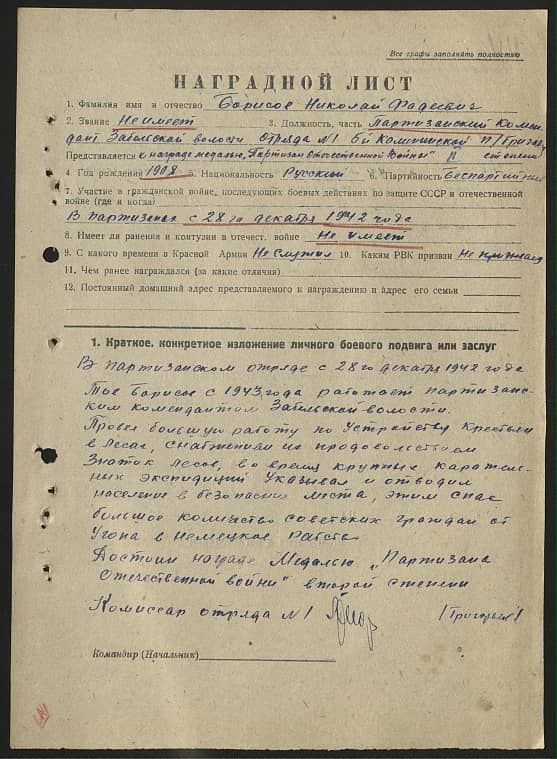 Все графы заполнять полностью
НАГРАДНОЙ ЛИСТ
1. Фамилия имя и отчество Борисов Николай Фадеевич
2. Звание Не имеет 3. Должность, часть Партизанский Комен-
дант Забельской волости Отряда №1 6й Калининской п/бригады
Представляется к награде медалью „Партизан Отечественной Войны" II степени
4. Год рождения 1908 5. Национальность Русский 6. Партийность Беспартийный
7. Участие в гражданской войне, последующих боевых действиях по защите СССР и отечественной
войне (где и когда)
В партизанах с 28 го декабря 1942 года
8. Имеет ли ранения и контузии в отечест. войне Не имеет
9. С какого времени в Красной Армии Не служил 10. Каким РВК призван Не призван
11. Чем ранее награждался (за какие отличия)
12. Постоянный домашний адрес представляемого к награждению и адрес его семьи
1. Краткое, конкретное изложение личного боевого подвига или заслуг
В Партизанском отряде с 28 го декабря 1942 года
Тов Борисов с 1943 года работает партизанс-
ким комендантом Забельской волости.
Провел большую работу по устройству Крестьян
в Лесах, снабжении их продовольствием
Знаток лесов, во время крупных каратель-
ных экспедиций Указывал и отводил
население в безопасные места, этим спас
большое количество советских граждан от
Угона в немецкое Рабство
Достоин награде Медалью „Партизана
Отечественной войны" второй степени
Комиссар отряда №1 /Григорьев/
Командир (Начальник)